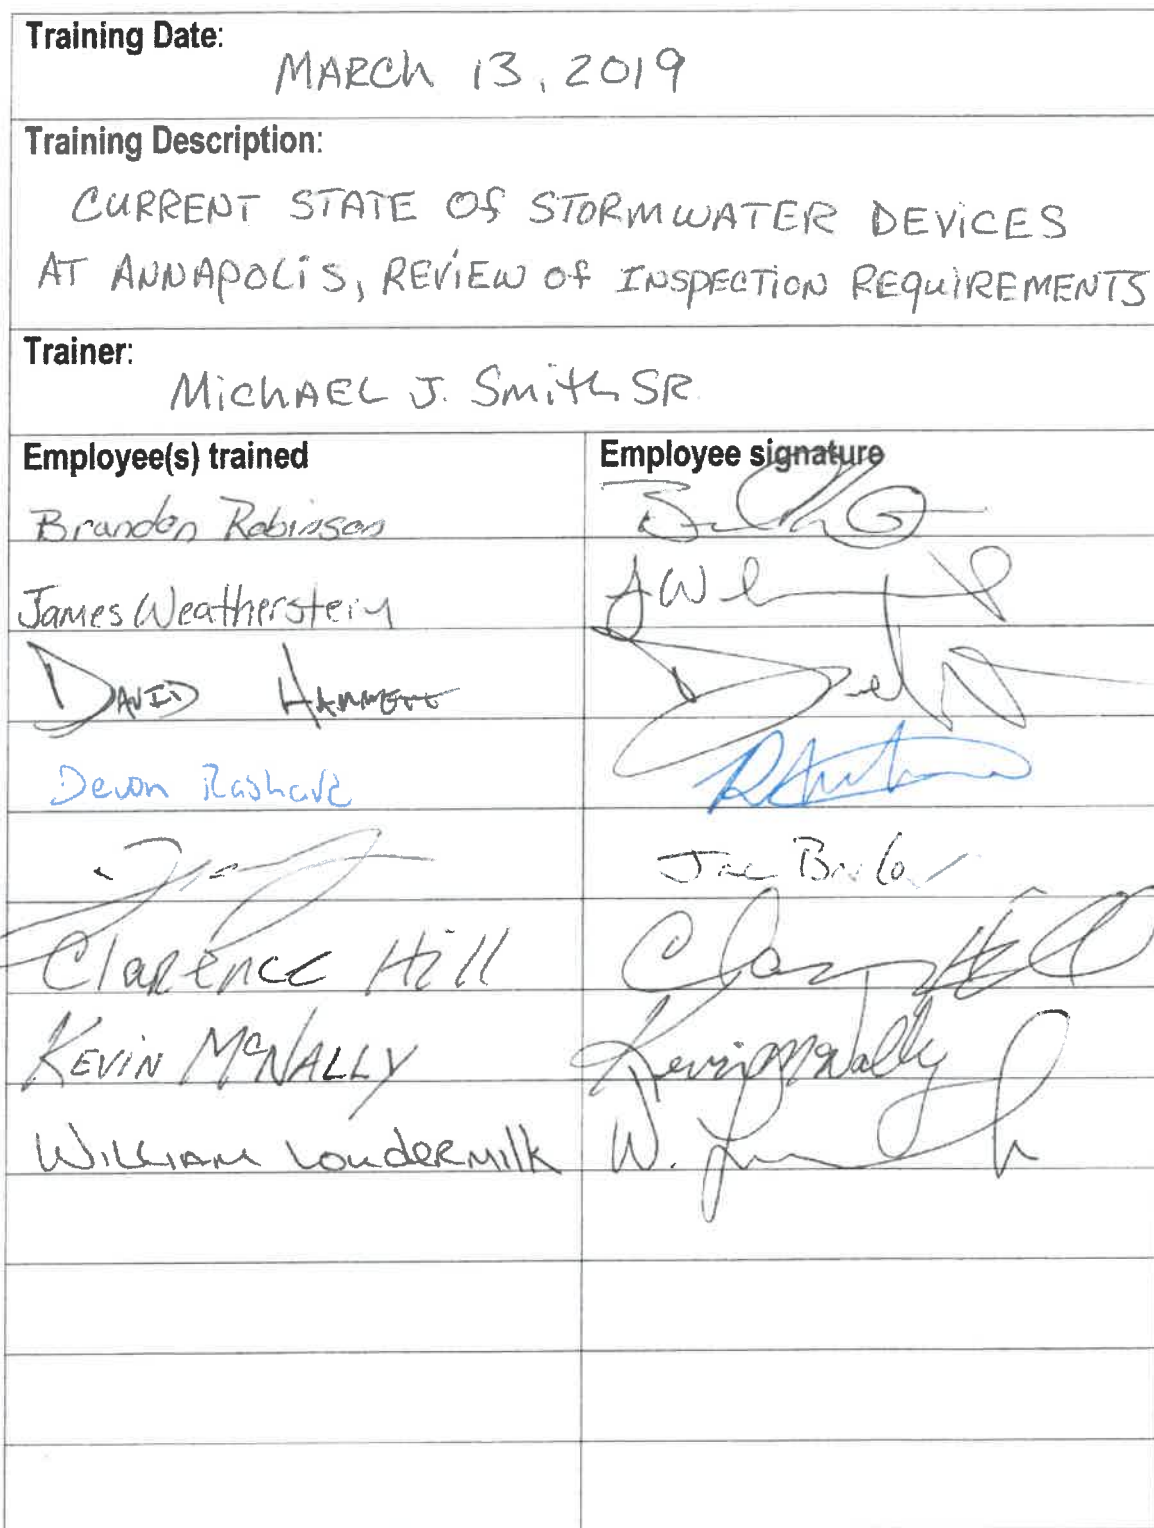 Training Date:
MARCh 13, 2019
Training Description:
CURRENT STATE OF STORMWATER DEVICES
AT ANNAPOLIS, REVIEW OF INSPECTION REQUIREMENTS
Trainer:
MichAEL J. Smith SR
Employee(s) trained Employee signature
Brandon Robinson
James Weatherstein
DAVID HAMMETT
Devon
Clarence Hill
KEVIN McNALLY Kevin McNally
WILLIAM LoudERMilk W.